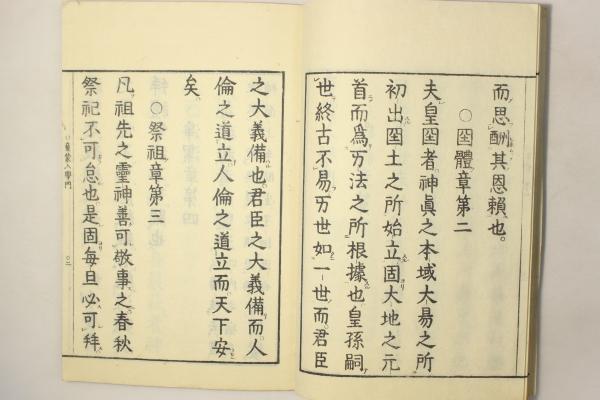 而思酬其恩賴也。
○囶體章第二
夫皇囶者神眞之本域大易之所
初出囶土之所始立固大地之元
首而爲万法之所根據也皇孫嗣
世終古不易万世如一世而君臣
之大義備也君臣之大義備而人
倫之道立人倫之道立而天下安
矣
○祭祖章第三
凡祖先之靈神善可敬事之春秋
祭祀不可怠也是固每旦必可拜
童蒙入學門